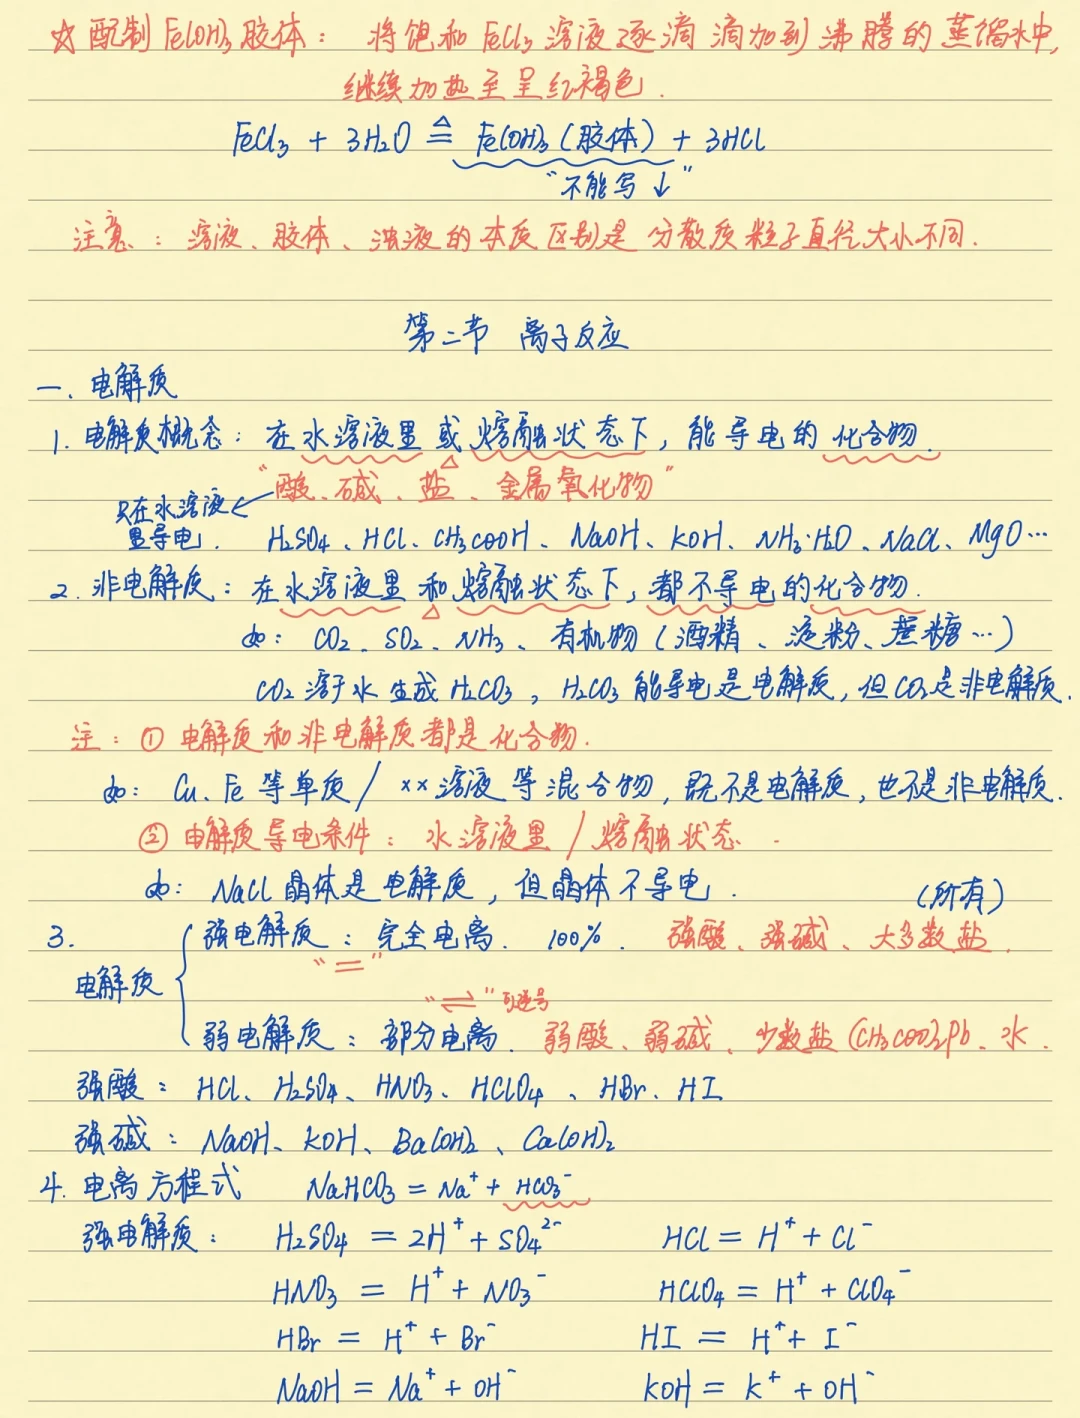 ☆ 配制 Fe(OH)₃ 胶体：将饱和 FeCl₃ 溶液逐滴滴加到沸腾的蒸馏水中,
继续加热至呈红褐色.
FeCl₃ + 3H₂O ≜ Fe(OH)₃ (胶体) + 3HCl
“不能写 ↓”
注意：溶液、胶体、浊液的本质区别是分散质粒子直径大小不同.
第二节 离子反应
一. 电解质
1. 电解质概念：在水溶液里或熔融状态下，能导电的化合物.
“酸、碱、盐、金属氧化物”
只在水溶液
里导电.
H₂SO₄、HCl、CH₃COOH、NaOH、KOH、NH₃·H₂O、NaCl、MgO…
2. 非电解质：在水溶液里和熔融状态下，都不导电的化合物.
如：CO₂、SO₂、NH₃、有机物（酒精、淀粉、蔗糖…）
CO₂ 溶于水生成 H₂CO₃，H₂CO₃ 能导电是电解质，但 CO₂ 是非电解质.
注：① 电解质和非电解质都是化合物.
如：Cu、Fe 等单质 / ××溶液等混合物，既不是电解质，也不是非电解质.
② 电解质导电条件：水溶液里 / 熔融状态.
如：NaCl 晶体是电解质，但晶体不导电.
(所有)
3.
强电解质：完全电离. 100%. 强酸、强碱、大多数盐.
“=”
电解质
“⇌” 可逆号
弱电解质：部分电离. 弱酸、弱碱、少数盐 (CH₃COO)₂Pb、水.
强酸：HCl、H₂SO₄、HNO₃、HClO₄、HBr、HI
强碱：NaOH、KOH、Ba(OH)₂、Ca(OH)₂
4. 电离方程式 NaHCO₃ = Na⁺ + HCO₃⁻
强电解质：H₂SO₄ = 2H⁺ + SO₄²⁻ HCl = H⁺ + Cl⁻
HNO₃ = H⁺ + NO₃⁻ HClO₄ = H⁺ + ClO₄⁻
HBr = H⁺ + Br⁻ HI = H⁺ + I⁻
NaOH = Na⁺ + OH⁻ KOH = K⁺ + OH⁻